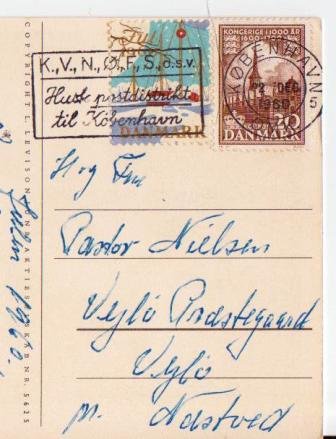 JUL
K.,V.,N.,Ø.,F.,S., o.s.v.
Husk postdistrikt
til København
DANMARK
KONGERIGE I 1000 ÅR
DANMARK
20
KØBENHAVN
22 DEC.
1960
5
Hr og Fru
Pastor Nielsen
Vejlø Præstegaard
Vejlø
pr. Næstved
COPYRIGHT L. LEVISON
NR. 5625
Julen 1960.